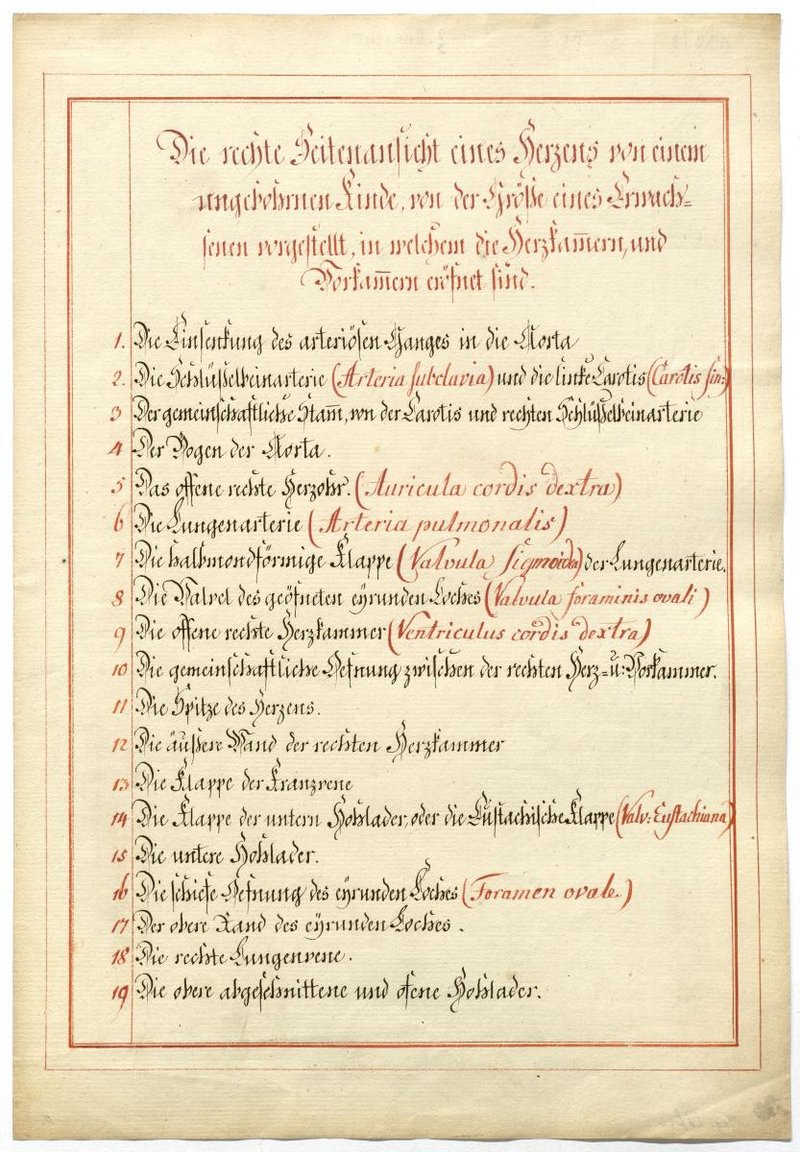 Die rechte Seitenansicht eines Herzens von einem
ungebohrnen Kinde, von der Größe eines Erwach=
senen vorgestellt, in welchem die Herzkam̄ern, und
Vorkam̄ern eröfnet sind.
1. Die Einsenkung des arteriösen Ganges in die Aorta
2. Die Schlüßelbeinarterie (Arteria subclavia) und die linke Carotis (Carotis sin:)
3 Der gemeinschaftliche Stam̄, von der Carotis und rechten Schlüßelbeinarterie
4 Der Bogen der Aorta.
5 Das offene rechte Herzohr. (Auricula cordis dextra)
6 Die Lungenarterie (Arteria pulmonalis)
7 Die halbmondförmige Klappe (Valvula sigmoida) der Lungenarterie.
8 Die Valvel des geöfneten eyrunden Loches (Valvula foraminis ovali)
9 Die offene rechte Herzkammer (Ventriculus cordis dextra)
10 Die gemeinschaftliche Oefnung zwischen der rechten Herz= u: Vorkammer.
11 Die Spitze des Herzens.
12 Die äußere Wand der rechten Herzkammer
13 Die Klappe der Kranzvene
14 Die Klappe der untern Hohlader, oder die Eustachische Klappe (Valv: Eustachiana)
15 Die untere Hohlader.
16 Die schiefe Oefnung des eyrunden Loches (Foramen ovale.)
17 Der obere Rand des eyrunden Loches.
18 Die rechte Lungenvene.
19 Die obere abgeschnittene und ofene Hohlader.